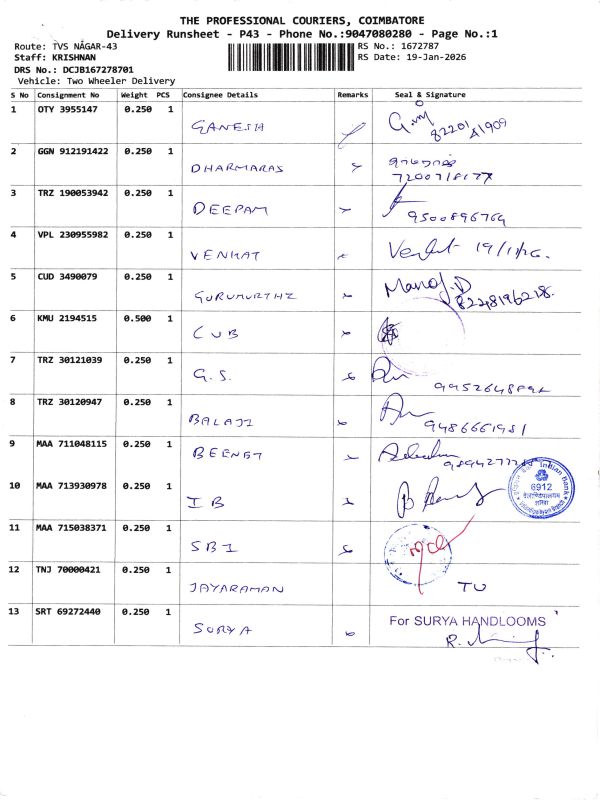 THE PROFESSIONAL COURIERS, COIMBATORE
Delivery Runsheet - P43 - Phone No.:9047080280 - Page No.:1
Route: TVS NAGAR-43
RS No.: 1672787
Staff: KRISHNAN
RS Date: 19-Jan-2026
DRS No.: DCJB167278701
Vehicle: Two Wheeler Delivery
S No Consignment No Weight PCS Consignee Details Remarks Seal & Signature
1 OTY 3955147 0.250 1 GANESH 82201 41909
2 GGN 912191422 0.250 1 DHARMARAS
3 TRZ 190053942 0.250 1 DEEPAM 9500896764
4 VPL 230955982 0.250 1 VENKAT Venkat 19/1/26.
5 CUD 3490079 0.250 1 GURUMURTHI Manoj.D
8248196218.
6 KMU 2194515 0.500 1 CUB
7 TRZ 30121039 0.250 1 G.S.
8 TRZ 30120947 0.250 1 BALAJI 9486661981
9 MAA 711048115 0.250 1
10 MAA 713930978 0.250 1 IB
Indian Bank
6912
11 MAA 715038371 0.250 1 SBI
12 TNJ 70000421 0.250 1 JAYARAMAN TU
13 SRT 69272440 0.250 1 SURYA For SURYA HANDLOOMS